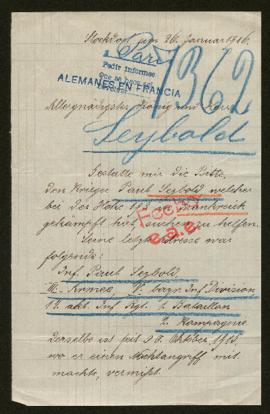 Stockdorf am 26. Januar 1916.
Paris
Pedir informes
ALEMANES EN FRANCIA
1362
Allergnädigster König und Herr
Seybold
Gestatte mir die Bitte,
den Krieger Paul Seybold welcher
bei der Höhe in Frankreich
gekämpft hat suchen zu helfen.
Fecho
e.a.e.
Seine letzte Adresse war
folgende:
Inf. Paul Seybold
III. Armee bayr. Inf. Division
Inf. Rgt. 1. Bataillon
2. Kompagnie
Derselbe ist seit 28. Oktober 1915.
wo er einen Nachtangriff mit
machte, vermißt.